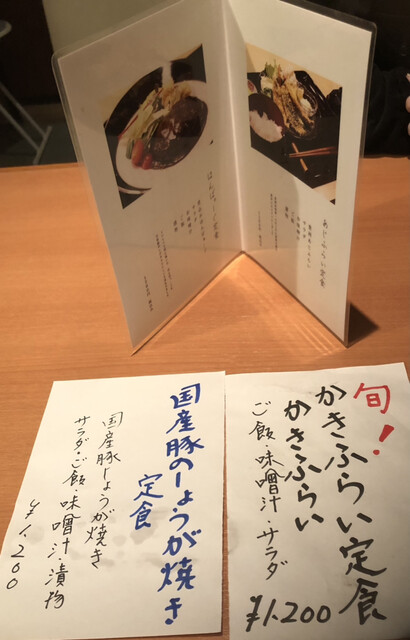 あじふらい定食
はんばーぐ定食
旬!
かきふらい定食
かきふらい
ご飯・味噌汁・サラダ
¥1.200
国産豚のしょうが焼き
定食
国産豚しょうが焼き
サラダ・ご飯・味噌汁・漬物
¥1,200